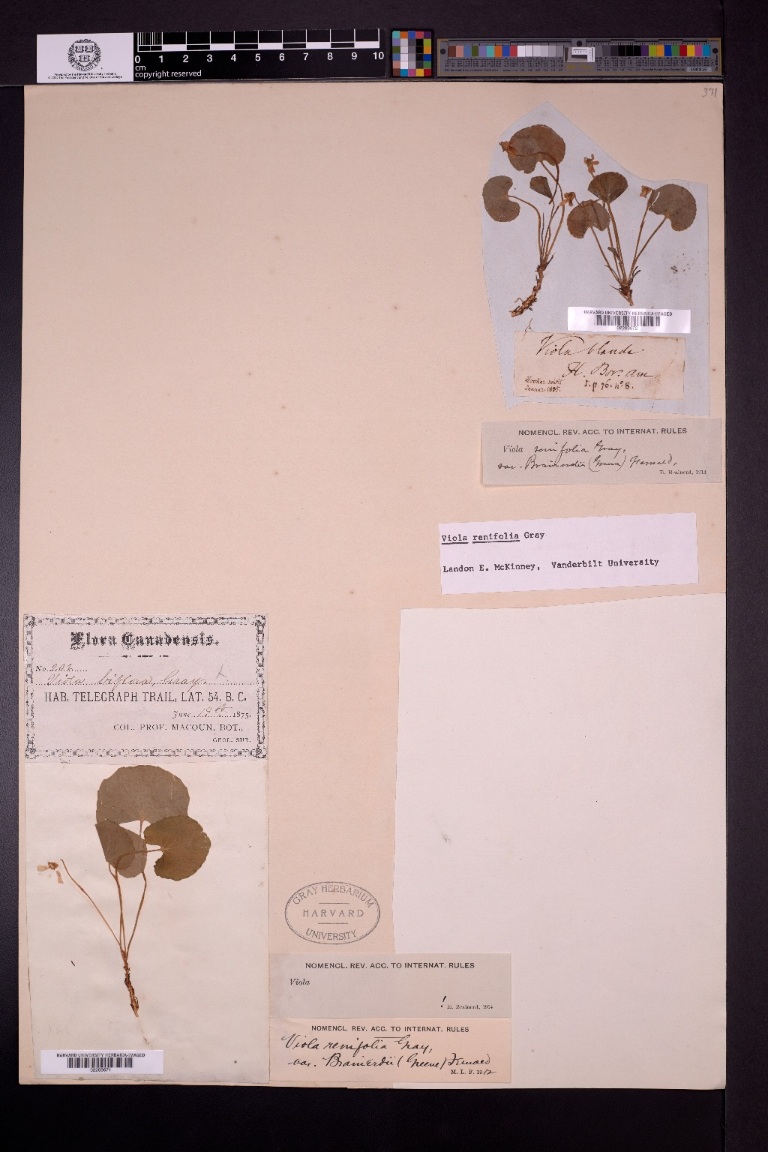 0 1 2 3 4 5 6 7 8 9 10
cm
copyright reserved
371
HARVARD UNIVERSITY HERBARIA IMAGED
Viola blanda
Fl. Bor. Am
I. p. 76. n° 8.
NOMENCL. REV. ACC. TO INTERNAT. RULES
Viola renifolia Gray,
var. Brainerdii (Greene) Fernald,
Viola renifolia Gray
Landon E. McKinney, Vanderbilt University
Flora Canadensis.
No. 202
Viola biflora, Gray
HAB. TELEGRAPH TRAIL, LAT. 54, B. C.
June 1875.
COL. PROF. MACOUN, BOT.,
GEOL. SUR.
GRAY HERBARIUM
HARVARD
UNIVERSITY
NOMENCL. REV. ACC. TO INTERNAT. RULES
Viola
!
NOMENCL. REV. ACC. TO INTERNAT. RULES
Viola renifolia Gray,
var. Brainerdii (Greene) Fernald
M. L. F. 1912
HARVARD UNIVERSITY HERBARIA IMAGED